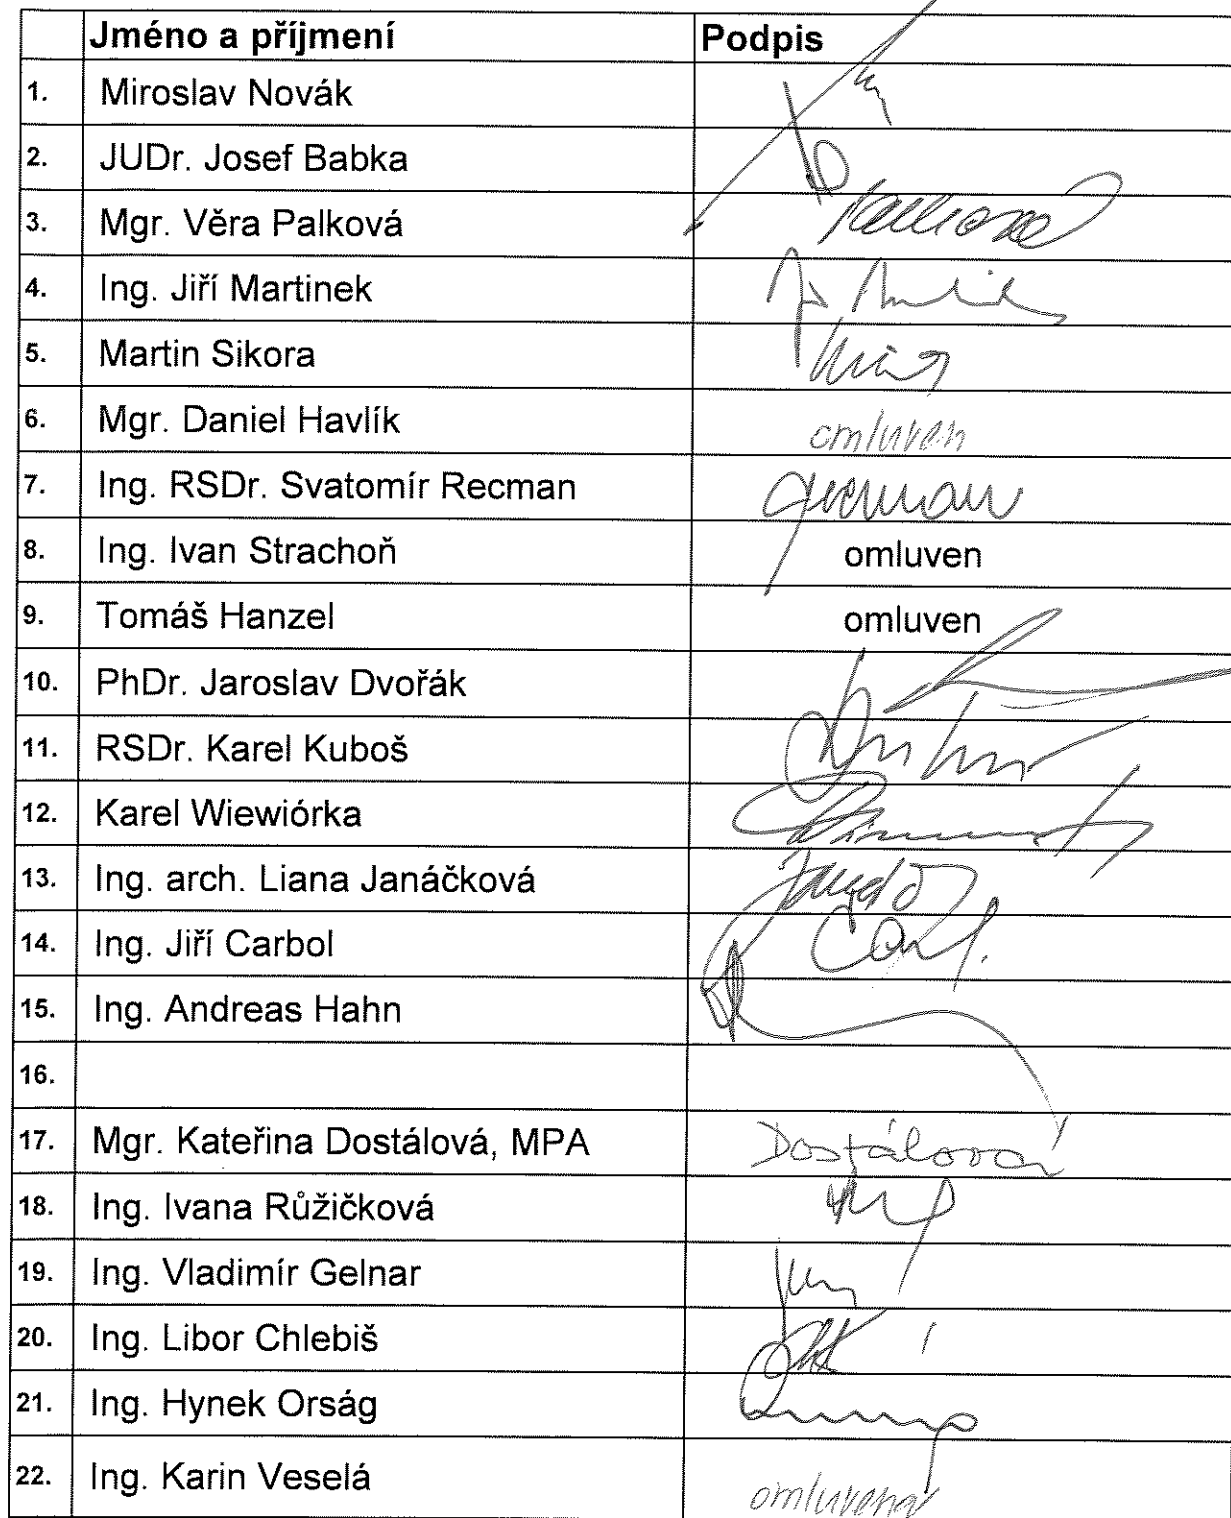 Jméno a příjmení Podpis
1. Miroslav Novák
2. JUDr. Josef Babka
3. Mgr. Věra Palková
4. Ing. Jiří Martinek
5. Martin Sikora
6. Mgr. Daniel Havlík omluven
7. Ing. RSDr. Svatomír Recman
8. Ing. Ivan Strachoň omluven
9. Tomáš Hanzel omluven
10. PhDr. Jaroslav Dvořák
11. RSDr. Karel Kuboš
12. Karel Wiewiórka
13. Ing. arch. Liana Janáčková
14. Ing. Jiří Carbol
15. Ing. Andreas Hahn
16.
17. Mgr. Kateřina Dostálová, MPA Dostálová
18. Ing. Ivana Růžičková
19. Ing. Vladimír Gelnar
20. Ing. Libor Chlebiš
21. Ing. Hynek Orság
22. Ing. Karin Veselá omluvena